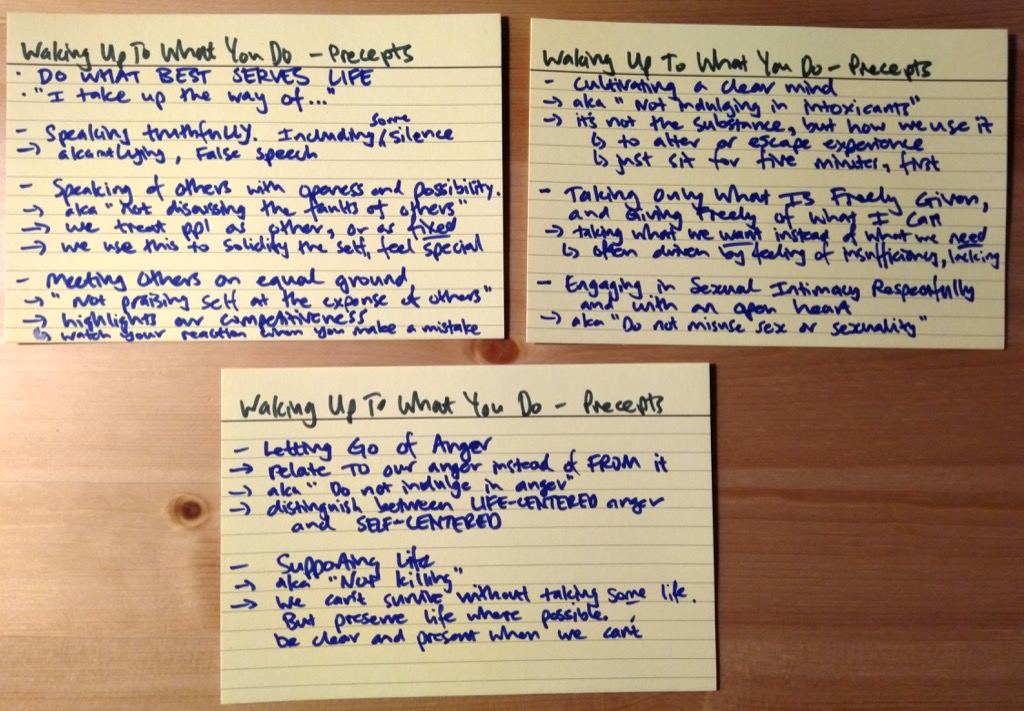 Waking Up To What You Do - Precepts
· DO WHAT BEST SERVES LIFE
· "I take up the way of..."
- Speaking truthfully. Including some silence
→ aka not lying, False speech
- Speaking of others with openess and possibility.
→ aka "Not discussing the faults of others"
→ we treat ppl as other, or as fixed
→ we use this to solidify the self, feel special
- Meeting Others on equal ground
→ "not praising self at the expense of others"
→ highlights our competitiveness
↳ watch your reaction when you make a mistake
Waking Up To What You Do - Precepts
- Cultivating a clear mind
→ aka "Not indulging in intoxicants"
→ it's not the substance, but how we use it
↳ to alter or escape experience
↳ just sit for five minutes, first
- Taking Only What Is Freely Given,
and Giving Freely of what I Can
→ taking what we want instead of what we need
↳ often driven by feeling of insufficiency, lacking
- Engaging in Sexual Intimacy Respectfully
and with an open heart
→ aka "Do not misuse sex or sexuality"
Waking Up To What You Do - Precepts
- Letting Go of Anger
→ relate TO our anger instead of FROM it
→ aka "Do not indulge in anger"
→ distinguish between LIFE-CENTERED anger
and SELF-CENTERED
- Supporting Life
→ aka "Not killing"
→ We can't survive without taking some life.
But preserve life where possible.
be clear and present when we can't